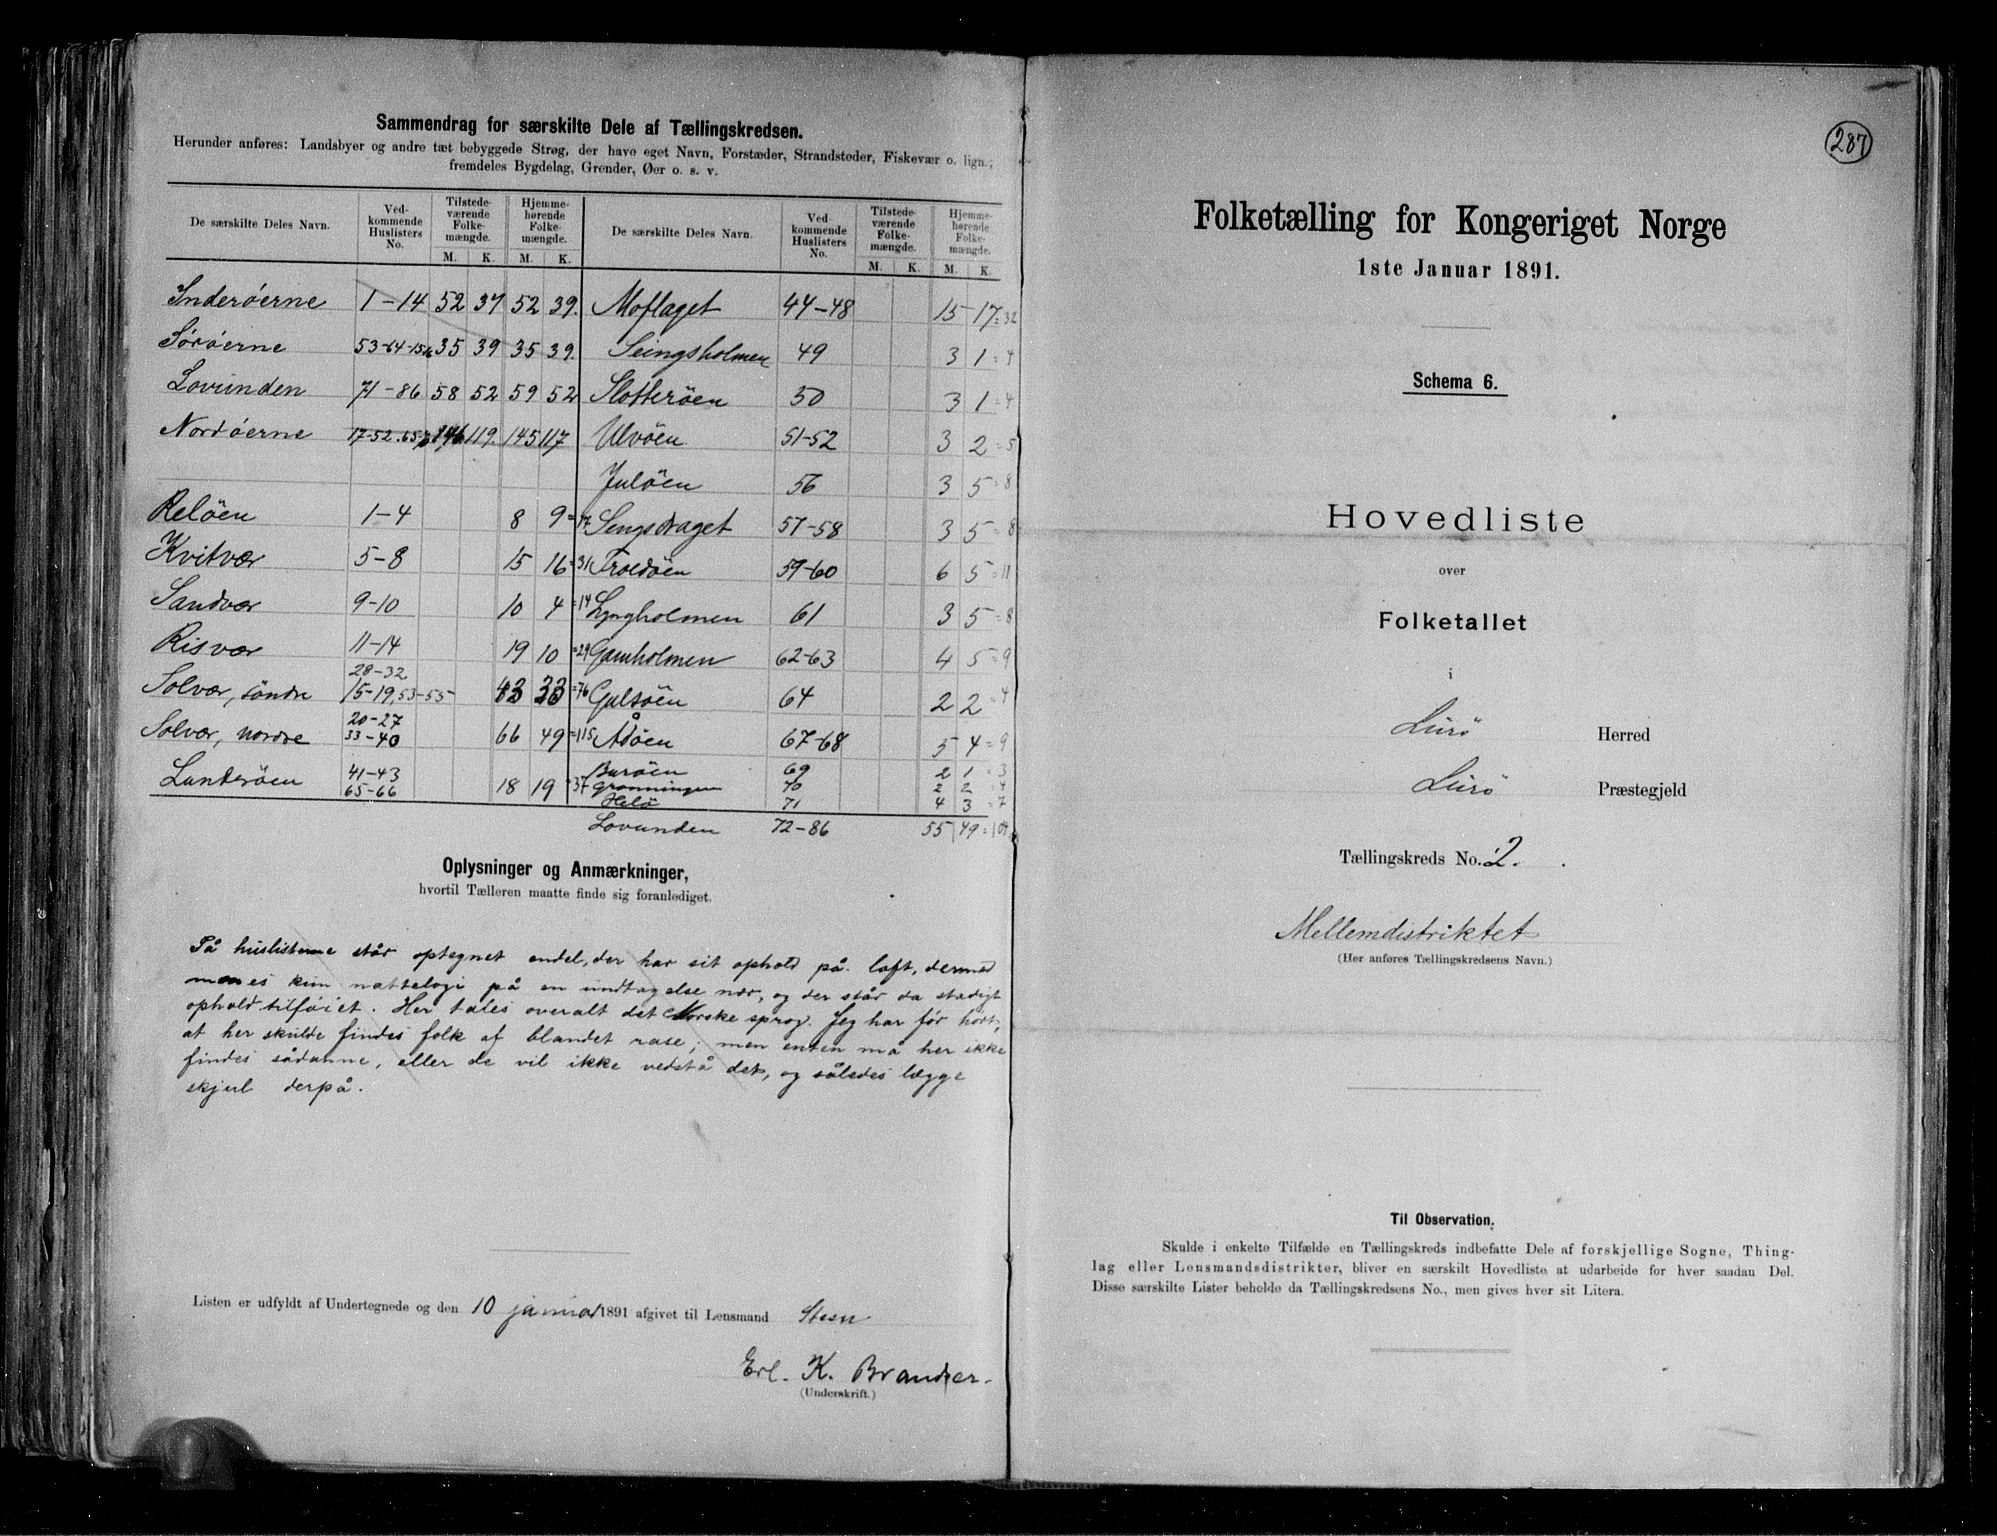 Sammendrag for særskilte Dele af Tællingskredsen.
Herunder anføres: Landsbyer og andre tæt bebyggede Strøg, der have eget Navn, Forstæder, Strandsteder, Fiskevær o. lign.;
fremdeles Bygdelag, Grender, Øer o. s. v.
De særskilte Deles Navn. Vedkommende Huslisters No. Tilstedeværende Folkemængde. M. K. Hjemmehørende Folkemængde. M. K. De særskilte Deles Navn. Vedkommende Huslisters No. Tilstedeværende Folkemængde. M. K. Hjemmehørende Folkemængde. M. K.
Inderöerne 1-14 52 37 52 39. Moflaget 44-48 15 17=32
Söröerne 53-64- 35 39 35 39. Seingsholmen 49 3 1=4
Lovunden 71-86 58 52 59 52 Slotteröen 50 3 1=4
Nordöerne 17-52. 146 119. 145 117 Ulvöen 51-52 3 2=5
Julöen 56 3 5=8
Relöen 1-4 8 9=17. Sengsdraget 57-58 3 5=8
Kvitvær 5-8 15 16=31 Troldöen 59-60 6 5=11
Sandvær 9-10 10 4=14 Lyngholmen 61 3 5=8
Risvær 11-14 19 10=29 Gamholmen 62-63 4 5=9
Solvær, söndre 28-32 15-19, 53-55 43 33=76 Galsöen 64 2 2=4
Solvær, nordre 20-27 33-40 66 49=115 Åöen 67-68 5 4=9
Landeröen 41-43 65-66 18 19=37 Buröen 69 2 1=3
Grönningen 70 2 2=4
Helö 71 4 3=7
Lovunden 72-86 55 49=104
Oplysninger og Anmærkninger,
hvortil Tælleren maatte finde sig foranlediget.
På huslisterne står optegnet endel, der har sit ophold på loft, dermed
menes kun natteloge på en undtagelse nær, og der står da stadigt
ophold tilföiet. Her tales overalt det Norske sprog. Jeg har för hört,
at her skulde findes folk af blandet rase; men enten må her ikke
findes sådanne, eller de vil ikke vedstå det, og således lægge
skjul derpå.
Listen er udfyldt af Undertegnede og den 10 januar 1891 afgivet til Lensmand Steen
Erl. K. Brandser.
(Underskrift.)
287
Folketælling for Kongeriget Norge
1ste Januar 1891.
Schema 6.
Hovedliste
over
Folketallet
i
Lurö Herred
Lurö Præstegjeld
Tællingskreds No. 2.
Mellemdistriktet
(Her anføres Tællingskredsens Navn.)
Til Observation.
Skulde i enkelte Tilfælde en Tællingskreds indbefatte Dele af forskjellige Sogne, Thing-
lag eller Lensmandsdistrikter, bliver en særskilt Hovedliste at udarbeide for hver saadan Del.
Disse særskilte Lister beholde da Tællingskredsens No., men gives hver sit Litera.